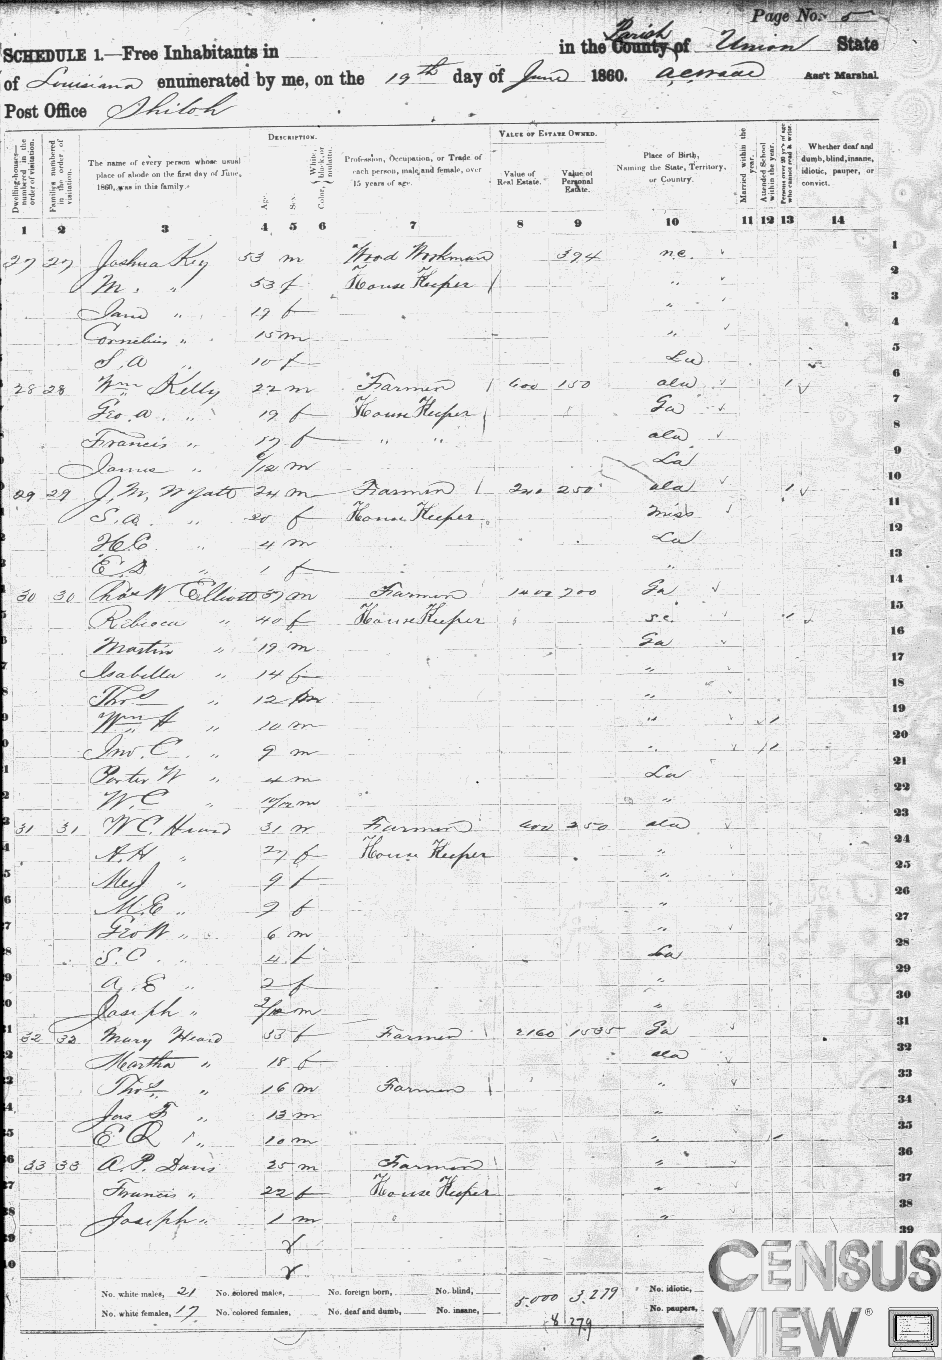 Page No. 5
SCHEDULE 1.—Free Inhabitants in in the County of Parish Union State
of Louisiana enumerated by me, on the 19th day of June 1860. Ass't Marshal.
Post Office Shiloh
Dwelling-houses—numbered in the order of visitation.
Families numbered in the order of visitation.
The name of every person whose usual place of abode on the first day of June, 1860, was in this family.
DESCRIPTION.
Age
Sex
Color, White, black, or mulatto.
Profession, Occupation, or Trade of each person, male and female, over 15 years of age.
VALUE OF ESTATE OWNED.
Value of Real Estate.
Value of Personal Estate.
Place of Birth, Naming the State, Territory, or Country.
Married within the year.
Attended School within the year.
Persons over 20 y'rs of age who cannot read & write.
Whether deaf and dumb, blind, insane, idiotic, pauper, or convict.
1 2 3 4 5 6 7 8 9 10 11 12 13 14
27 27 Joshua Key 53 m Wood Workman 394 n.c. 1
M. " 53 f House Keeper " 2
Jane " 19 f " 3
Cornelius " 15 m " 4
S. A " 10 f La 5
28 28 Wm Kelly 22 m Farmer 600 150 ala 1 6
Geo. a. " 19 f House Keeper Ga 7
Francis " 17 f " " ala 8
James " /12 m La 9
29 29 J. M. Wyatt 24 m Farmer 240 250 ala 1 10
S. a. " 20 f House Keeper Miss 11
H. E " 4 m La 12
E D " 1 f " 13
30 30 Thos W. Elliott 37 m Farmer 1400 200 Ga 14
Rebecca " 40 f House Keeper S.C. 1 15
Martin " 19 m Ga 16
Isabella " 14 f " 17
Thos " 12 m " 18
Wm H " 10 m " 1 19
Jno. C. " 9 m " 1 20
Porter W " 4 m La 21
W. C " 10/12 m " 22
31 31 W C. Heard 31 m Farmer 600 250 ala 23
A. H " 27 f House Keeper " 24
" 9 f " 25
M. E " 9 f " 26
Geo W " 6 m " 27
S. C. " 4 f La 28
A. E " 2 f " 29
Joseph " 2/12 m " 30
32 32 Mary Heard 53 f Farmer 2160 1535 Ga 31
Martha " 18 f ala 32
Thos " 16 m Farmer " 33
Jas F " 13 m " 34
E Q " 10 m " 1 35
33 33 A. P. Davis 25 m Farmer " 36
Francis " 22 f House Keeper " 37
Joseph " 1 m " 38
39
No. white males, 21 No. colored males, No. foreign born, No. blind, 5.000 3.279 No. idiotic,
No. white females, 17 No. colored females, No. deaf and dumb, No. insane, No. paupers,
8 279
CENSUS
VIEW®